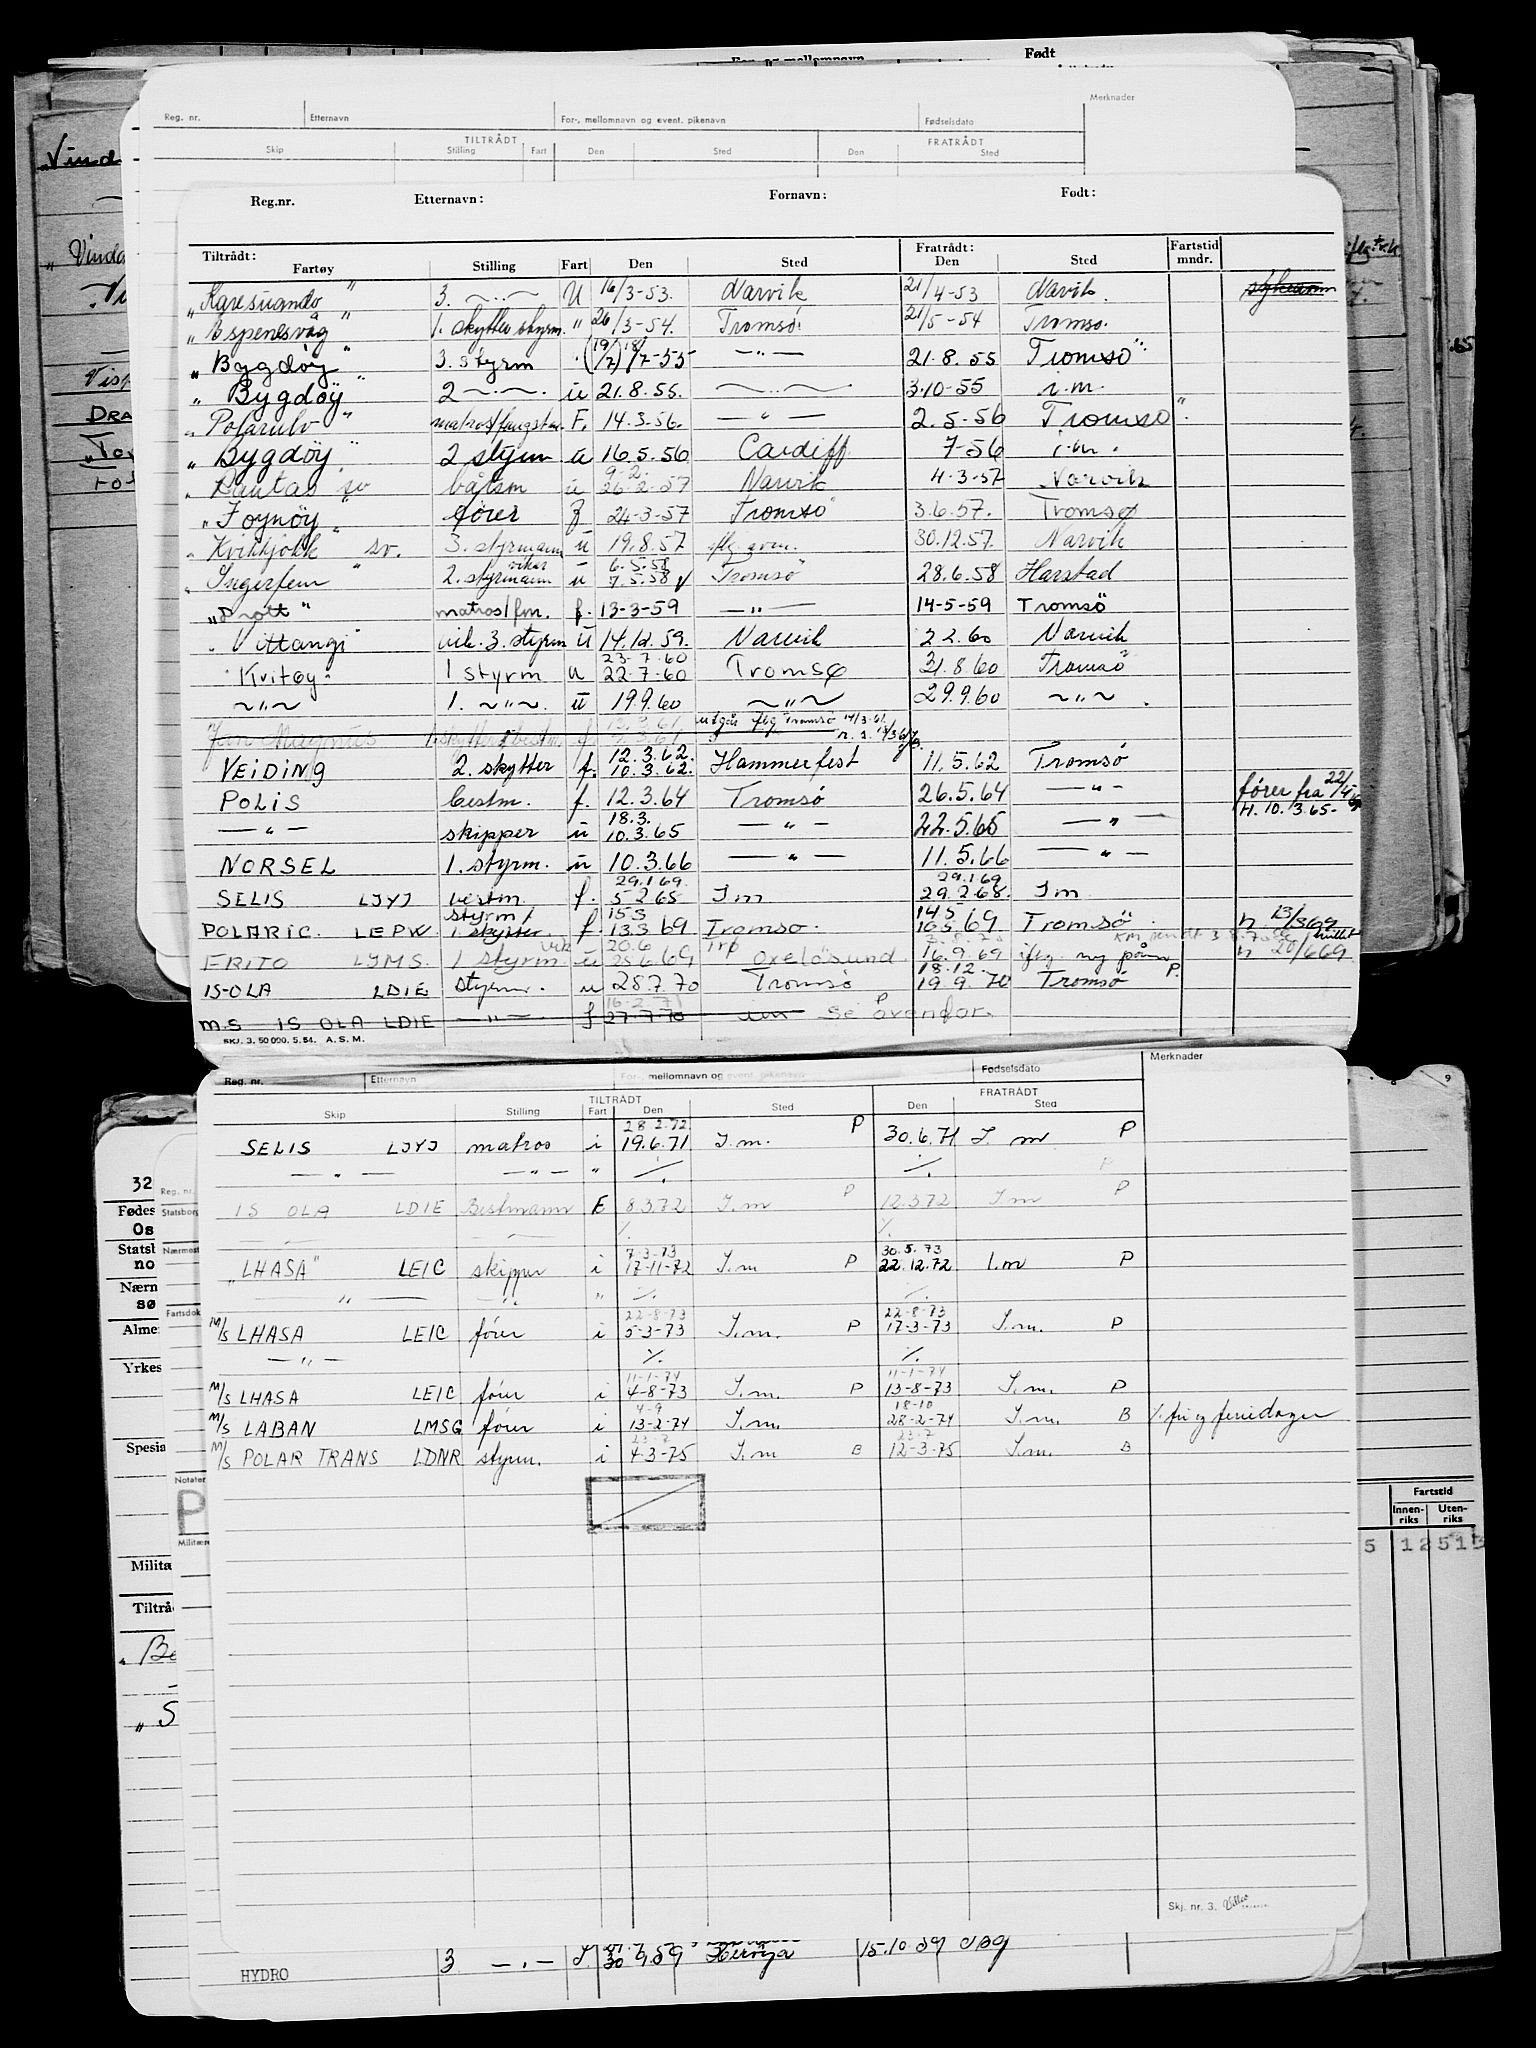 Født
Merknader
Reg. nr. Etternavn For-, mellomnavn og event. pikenavn Fødselsdato
TILTRÅDT FRATRÅDT
Skip Stilling Fart Den Sted Den Sted
Reg.nr. Etternavn: Fornavn: Født:
Tiltrådt: Fratrådt: Fartstid
Fartøy Stilling Fart Den Sted Den Sted mndr.
"Karesuando" 3. —"— U 16/3-53. Narvik 21/4-53 Narvik.
"Espenesvåg" 1. skytter styrm. " 26/3-54. Tromsö. 21/5-54 Tromsö.
"Bygdöy" 3. styrm (19/7) 18/7-55 —"— 21.8.55 Tromsö
"Bygdöy" 2 —"— u 21.8.55. —"— 3.10-55 i.m.
"Polarulv" matros/fangstm. F. 14.3.56. —"— 2.5-56 Tromsö.
"Bygdöy" 2 styrm u 16.5.56 Cardiff 7-56 i.m.
"Rautas" sv båtsm u 9-2. 26-2-57 Narvik 4-3-57 Narvik
"Foynöy" förer f 24-3-57 Tromsö 3.6.57. Tromsø
"Kvikkjokk" sv. 3. styrmann u 19.8.57 30.12.57. Narvik
"Ingerfem" 2. styrmann vikar u 6.5.58 7.5.58 Tromsö 28.6.58 Harstad
"Drott" matros/fm. f. 13-3-59 —"— 14-5-59 Tromsö
"Vittangi" vik. 3. styrm u 14.12.59. Narvik 2 2.60 Narvik
"Kvitøy" 1 styrm u 23.7.60 22.7.60 Tromsø 31.8.60 Tromsö
—"— 1. —"— u 19.9.60 —"— 29.9.60 —"—
"Jan Maynus f.
VEIDING 2. skytter f. 12.3.62. 10.3.62. Hammerfest 11.5.62 Tromsö
POLIS bestm. f. 12.3.64 Tromsö 26.5.64 —"— fører fra 22/4
—"— skipper u 18.3. 10.3.65 —"— 22.5.65 —"— H. 10.3.65-
NORSEL 1. styrm. u 10.3.66 —"— 11.5.66 —"—
SELIS LJYJ bestm f. 29.1.69. 5 2 65 I m 29.1.69 29.2.68. I m
POLARIC. LEPW styrm/ 1. skytter f. 15 3 13 3 69 Tromsö. 14 5 69 Tromsö. h 13/3 69
FRITO LJMS. 1 styrm. vik u 20.6 69 Trp Oxelösund 16.9.69 h 20/6 69
IS-OLA LDIE styrm. u 28.7.70 Tromsö 18.12. 19 9.70 Tromsö P.
M.S IS OLA LDIE —"— f 16.2.71 27.7.70 i.m se ovenfor.
SKJ. 3. 50 000. 5. 54. A. S. M.
Merknader
Reg. nr. Etternavn For-, mellomnavn og event. pikenavn Fødselsdato
TILTRÅDT FRATRÅDT
Skip Stilling Fart Den Sted Den Sted
SELIS LJYJ matros i 28.2.72 19.6.71 I.m. P 30.6.71 I.m P
—"— —"— " ./. ./. P
IS OLA LDIE Bestmann F 8.3.72 I.m P 12.3.72 I.m P
—"— ./. ./.
"LHASA" LEIC skipper i 7-3-73 17-11-72 I.m P 30.5.73 22.12.72 I.m P
—"— —"— " ./. ./.
M/S LHASA LEIC fører i 22-8-73 5-3-73 I.m. P 22-8-73 17-3-73 I.m. P
—"— ./. ./.
M/S LHASA LEIC fører i 11-1-74 4-8-73 I.m. P 11-1-74 13-8-73 I.m. P
M/S LABAN LMSG fører i 4-9 13-2-74 I.m. 18-10 28-2-74 I.m. B ./. fri og feriedager
M/S POLAR TRANS LDNR styrm. i 23-7 4-3-75 I.m B 23-7 12-3-75 I.m. B
Skj. nr. 3.
HYDRO 3. —"— 30 9.59 Herøya 15.10 59
"Vind
"Vinda
DRA
32
Reg. nr.
Fødes Statsborg
Os
Statsb Nærmest
no
Nærn
sø Fartsdok
Alme
Yrkes
Spesia
Notater
P
Militære
Militæ
Tiltrå
"Be
"S
Fartstid
Innen-riks Uten-riks
5 12 513